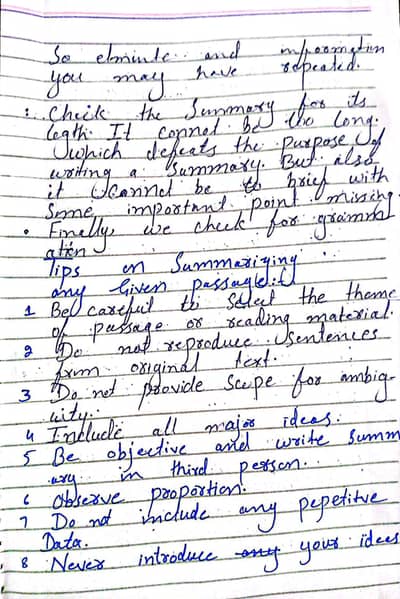 So elminte and information
you may have repeated.
: Cheik the Summary for its
legth. It connot be too long.
which defeats the purpose of
writing a Summary. But also
it Cannot be to brief with
Some important point missing.
• Finally, we check for gramm
ation
Tips on Summarizing
any Given passage :-
1 Be careful to Select the theme
of passage or reading material.
2 Do not reproduce sentences
from original text.
3 Do not provide Scope for ambig
uity.
4 Include all major ideas.
5 Be objective and write Summ
ary in third person.
6 Observe proportion.
7 Do not include any pepetitve
Data.
8 Never introduce any your idees